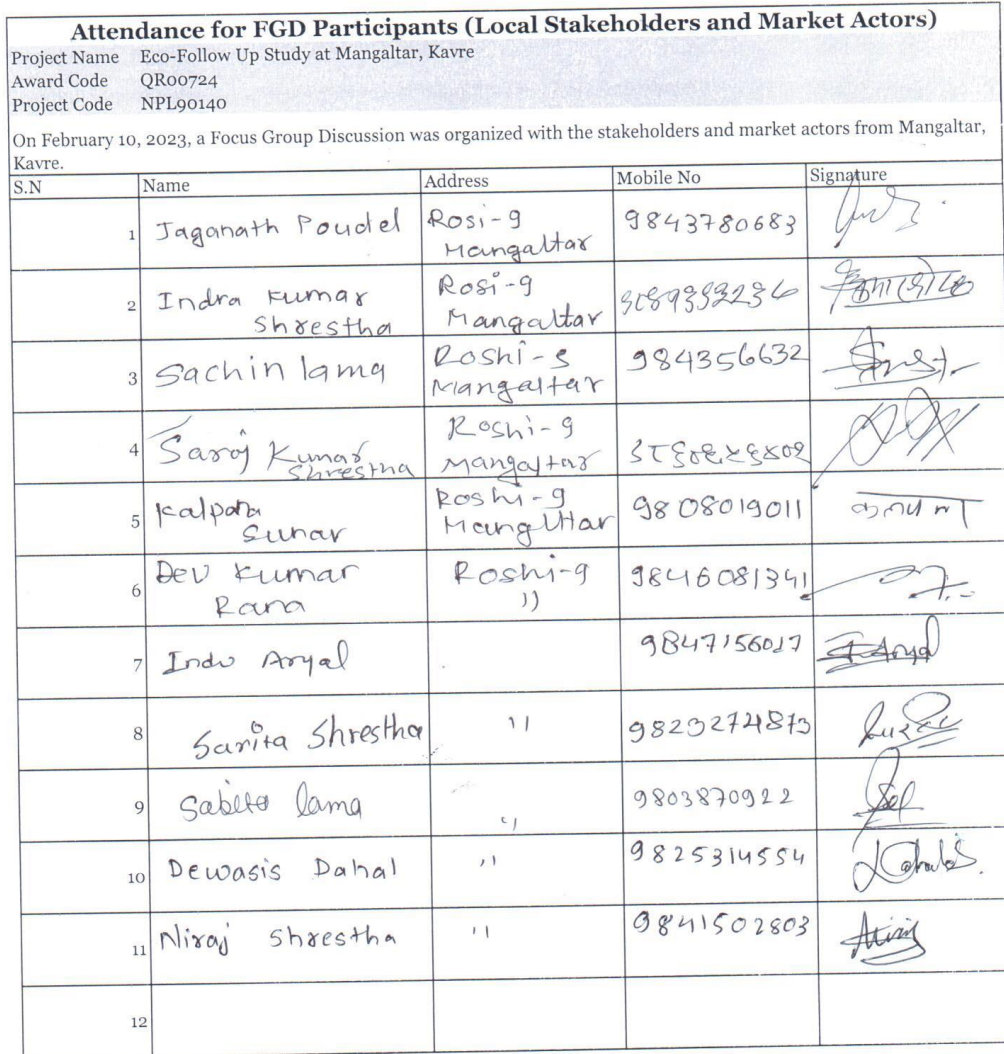 Attendance for FGD Participants (Local Stakeholders and Market Actors)
Project Name Eco-Follow Up Study at Mangaltar, Kavre
Award Code QR00724
Project Code NPL90140
On February 10, 2023, a Focus Group Discussion was organized with the stakeholders and market actors from Mangaltar,
Kavre.
S.N Name Address Mobile No Signature
1 Jaganath Poudel Rosi-9 9843780683
Mangaltar
2 Indra Kumar Rosi-9
Shrestha Mangaltar
3 Sachin lama Roshi- 984356632
Mangaltar
4 Saroj Kumar Roshi-9
Shrestha Mangaltar
5 Kalpana Roshi-9 9808019011 कलपना
Sunar Mangltar
6 Dev Kumar Roshi-9 9846081341
Rana ''
7 Indu Aryal 9847156017 I. Aryal
8 Sarita Shrestha '' 9823274873
9 lama '' 9803870922
10 Dewasis Dahal '' 9825314554
11 Niraj Shrestha '' 9841502803
12